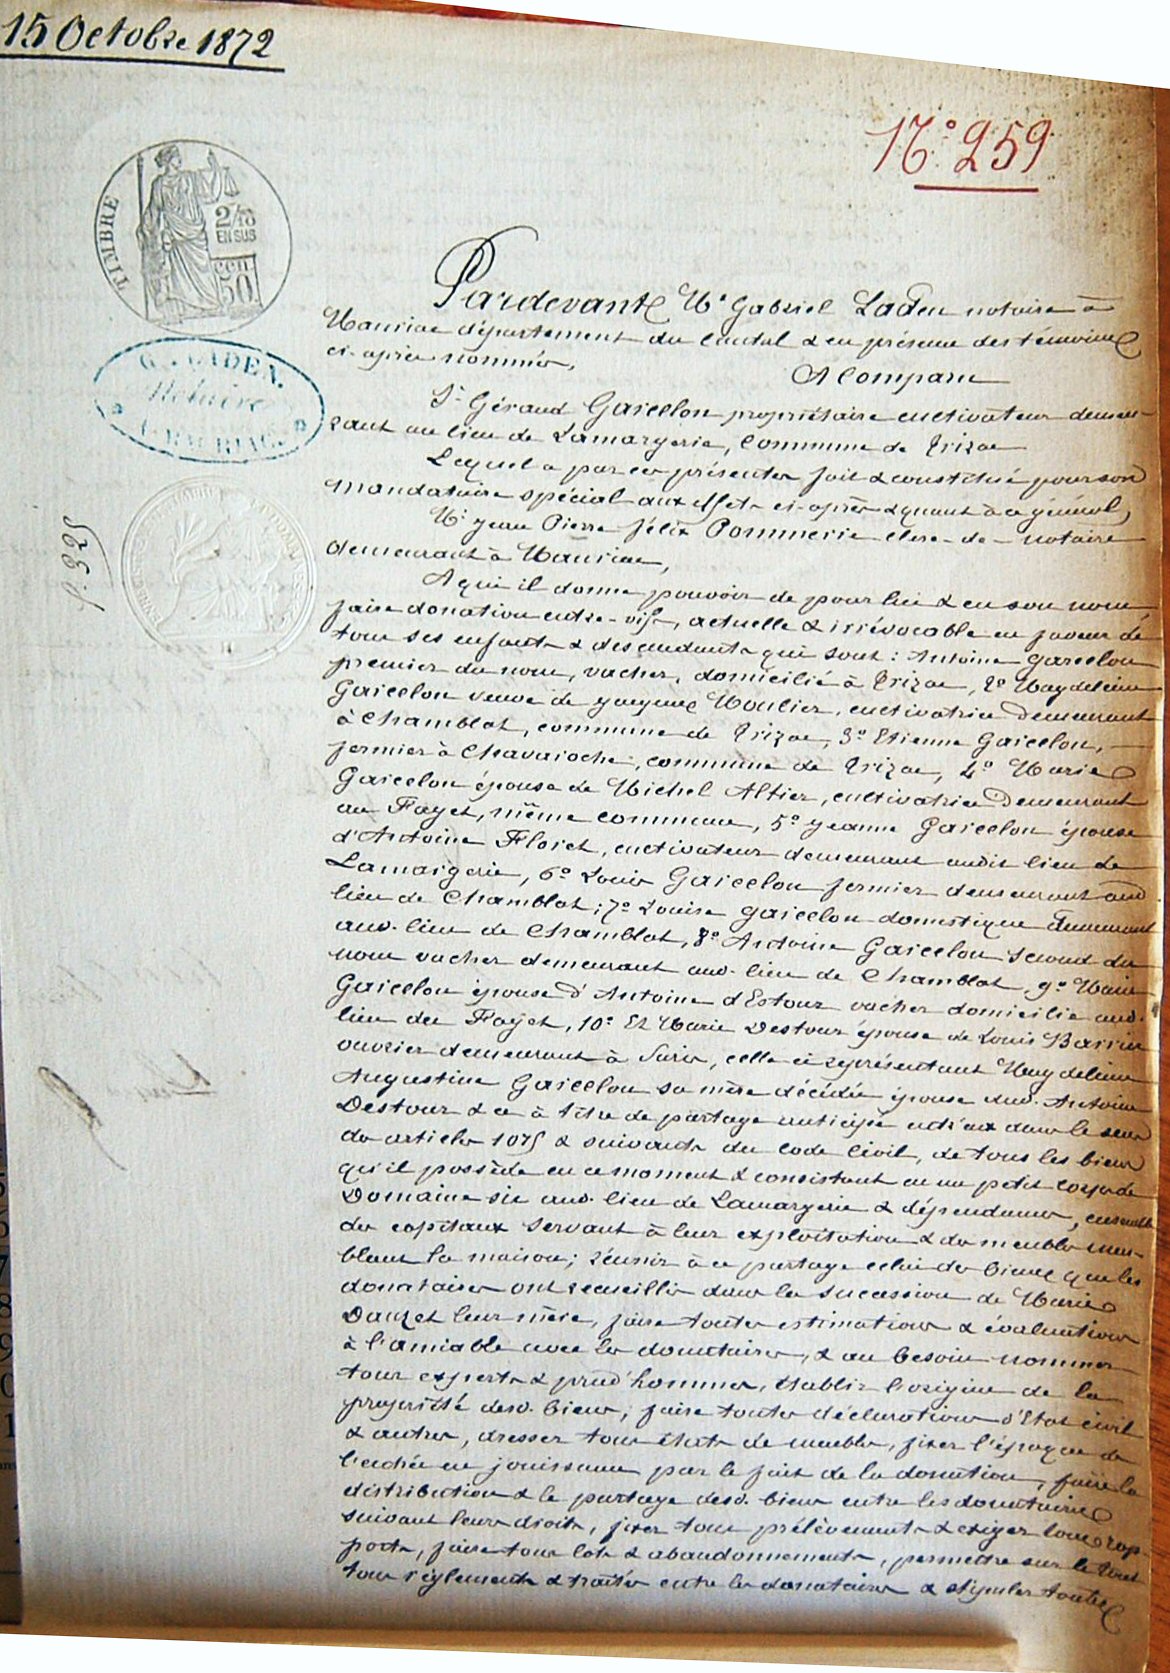 15 Octobre 1872
N.° 259
TIMBRE
2/10
EN SUS
50
G. LADEN.
Notaire
A MAURIAC.
f. 325
Pardevant Me Gabriel Laden notaire à
Mauriac département du Cantal & en présence des témoins
ci-après nommés,
A Comparu
Sr Géraud Garcelon propriétaire cultivateur demeu-
rant au lieu de Lamargerie, commune de Trizac
Lequel a par ces présentes fait & constitué pour son
mandataire spécial aux effets ci-après & quant à ce général,
Mr Jean Pierre Félix Pommerie clerc-de-notaire
demeurant à Mauriac,
A qui il donne pouvoir de pour lui & en son nom
faire donation entre-vifs, actuelle & irrévocable en faveur de
tous ses enfants & descendants qui sont : Antoine Garcelon
premier du nom, vacher, domicilié à Trizac, 2° Magdeleine
Garcelon veuve de Jacques Moulier, cultivatrice demeurant
à Chamblat, commune de Trizac, 3° Etienne Garcelon,
fermier à Chavaroche, commune de Trizac, 4° Marie
Garcelon épouse de Michel Altier, cultivatrice demeurant
au Fayet, même commune, 5° Jeanne Garcelon épouse
d'Antoine Floret, cultivateur demeurant audit lieu de
Lamargerie, 6° Louis Garcelon fermier demeurant aud.
lieu de Chamblat ; 7° Louise Garcelon domestique demeurant
aud. lieu de Chamblat, 8° Antoine Garcelon second du
nom vacher demeurant aud. lieu de Chamblat, 9° Marie
Garcelon épouse d'Antoine d'Estour vacher domicilié aud.
lieu du Fayet, 10° Et Marie Destour épouse de Louis
ouvrier demeurant à Paris, celle ci représentant Magdeleine
Augustine Garcelon sa mère décédée épouse dud. Antoine
Destour & ce à titre de partage anticipé entr'eux dans le sens
des articles 1075 & suivants du code Civil, de tous les biens
qu'il possède en ce moment & consistant en un petit corps de
Domaine sis aud. lieu de Lamargerie & dépendances, ensemble
des capitaux servant à leur exploitation & des meubles meu-
blant la maison ; réunir à ce partage celui des biens que les
donataires ont recueillis dans la succession de Marie
Dauzet leur mère, faire toutes estimations & évaluations
à l'amiable avec les donataires, & au besoin nommer
tous experts & prud'hommes, établir l'origine de la
propriété desd. biens, faire toutes déclarations d'Etat civil
& autres, dresser tous états de meubles, fixer l'époque de
l'entrée en jouissance par le fait de la donation, faire la
distribution & le partage desd. biens entre les donataires
suivant leurs droits, fixer tous prélèvements & exiger tous rap-
ports, faire tous lots & abandonnements, permettre sur le tout
tous règlements & traités entre les donataires & stipuler toutes